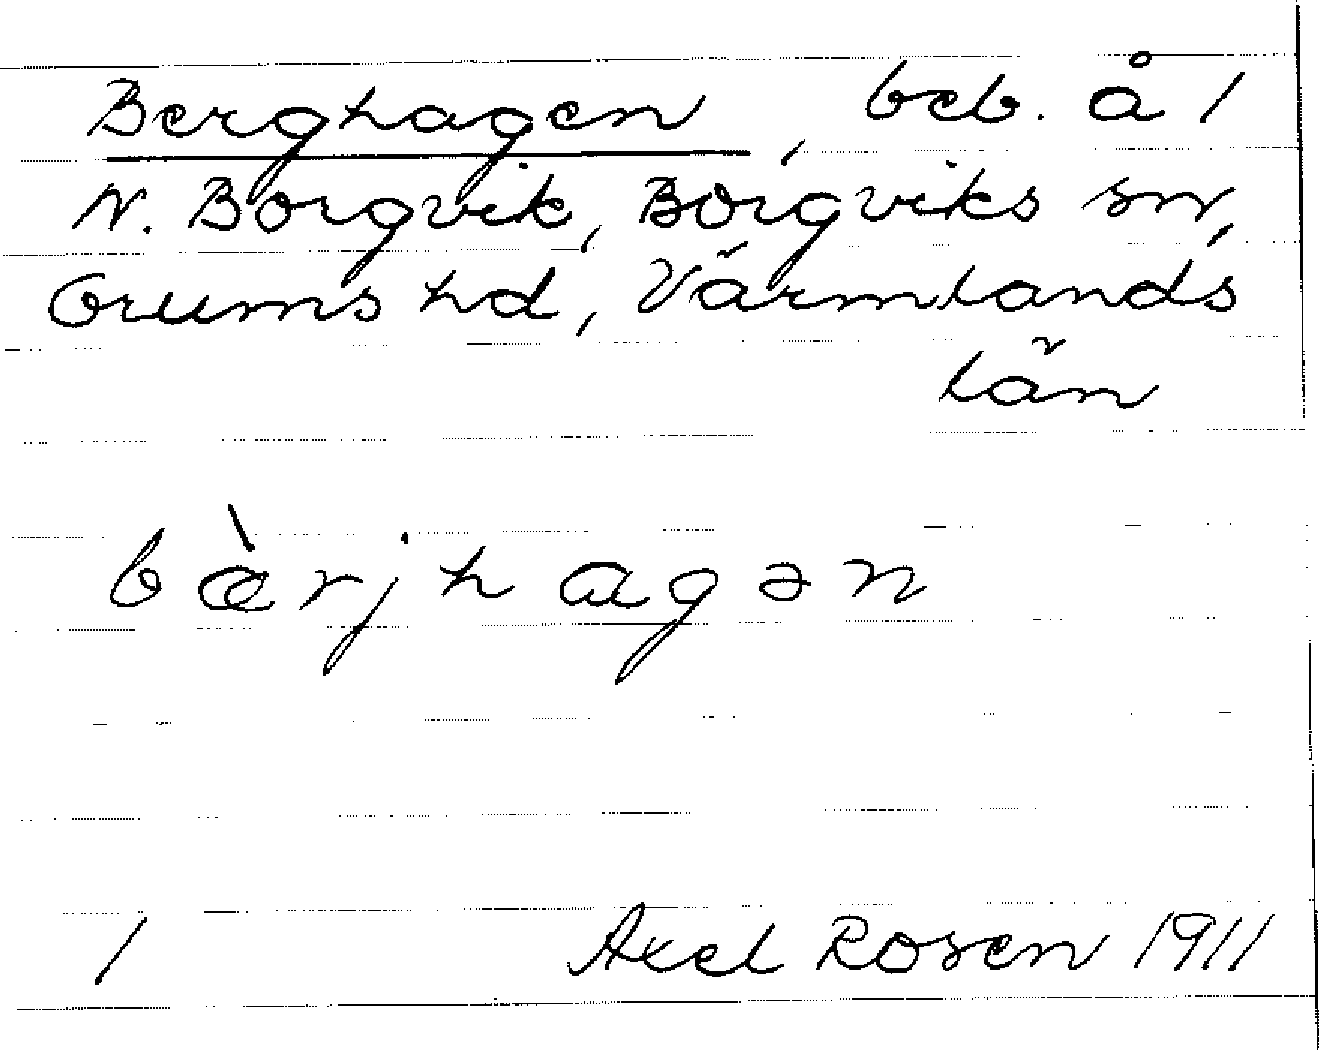 Berghagen, beb. å 1
N. Borgvik, Borgviks sn,
Grums hd, Värmlands
län
bæ̀rjhagən
1 Axel Rosen 1911